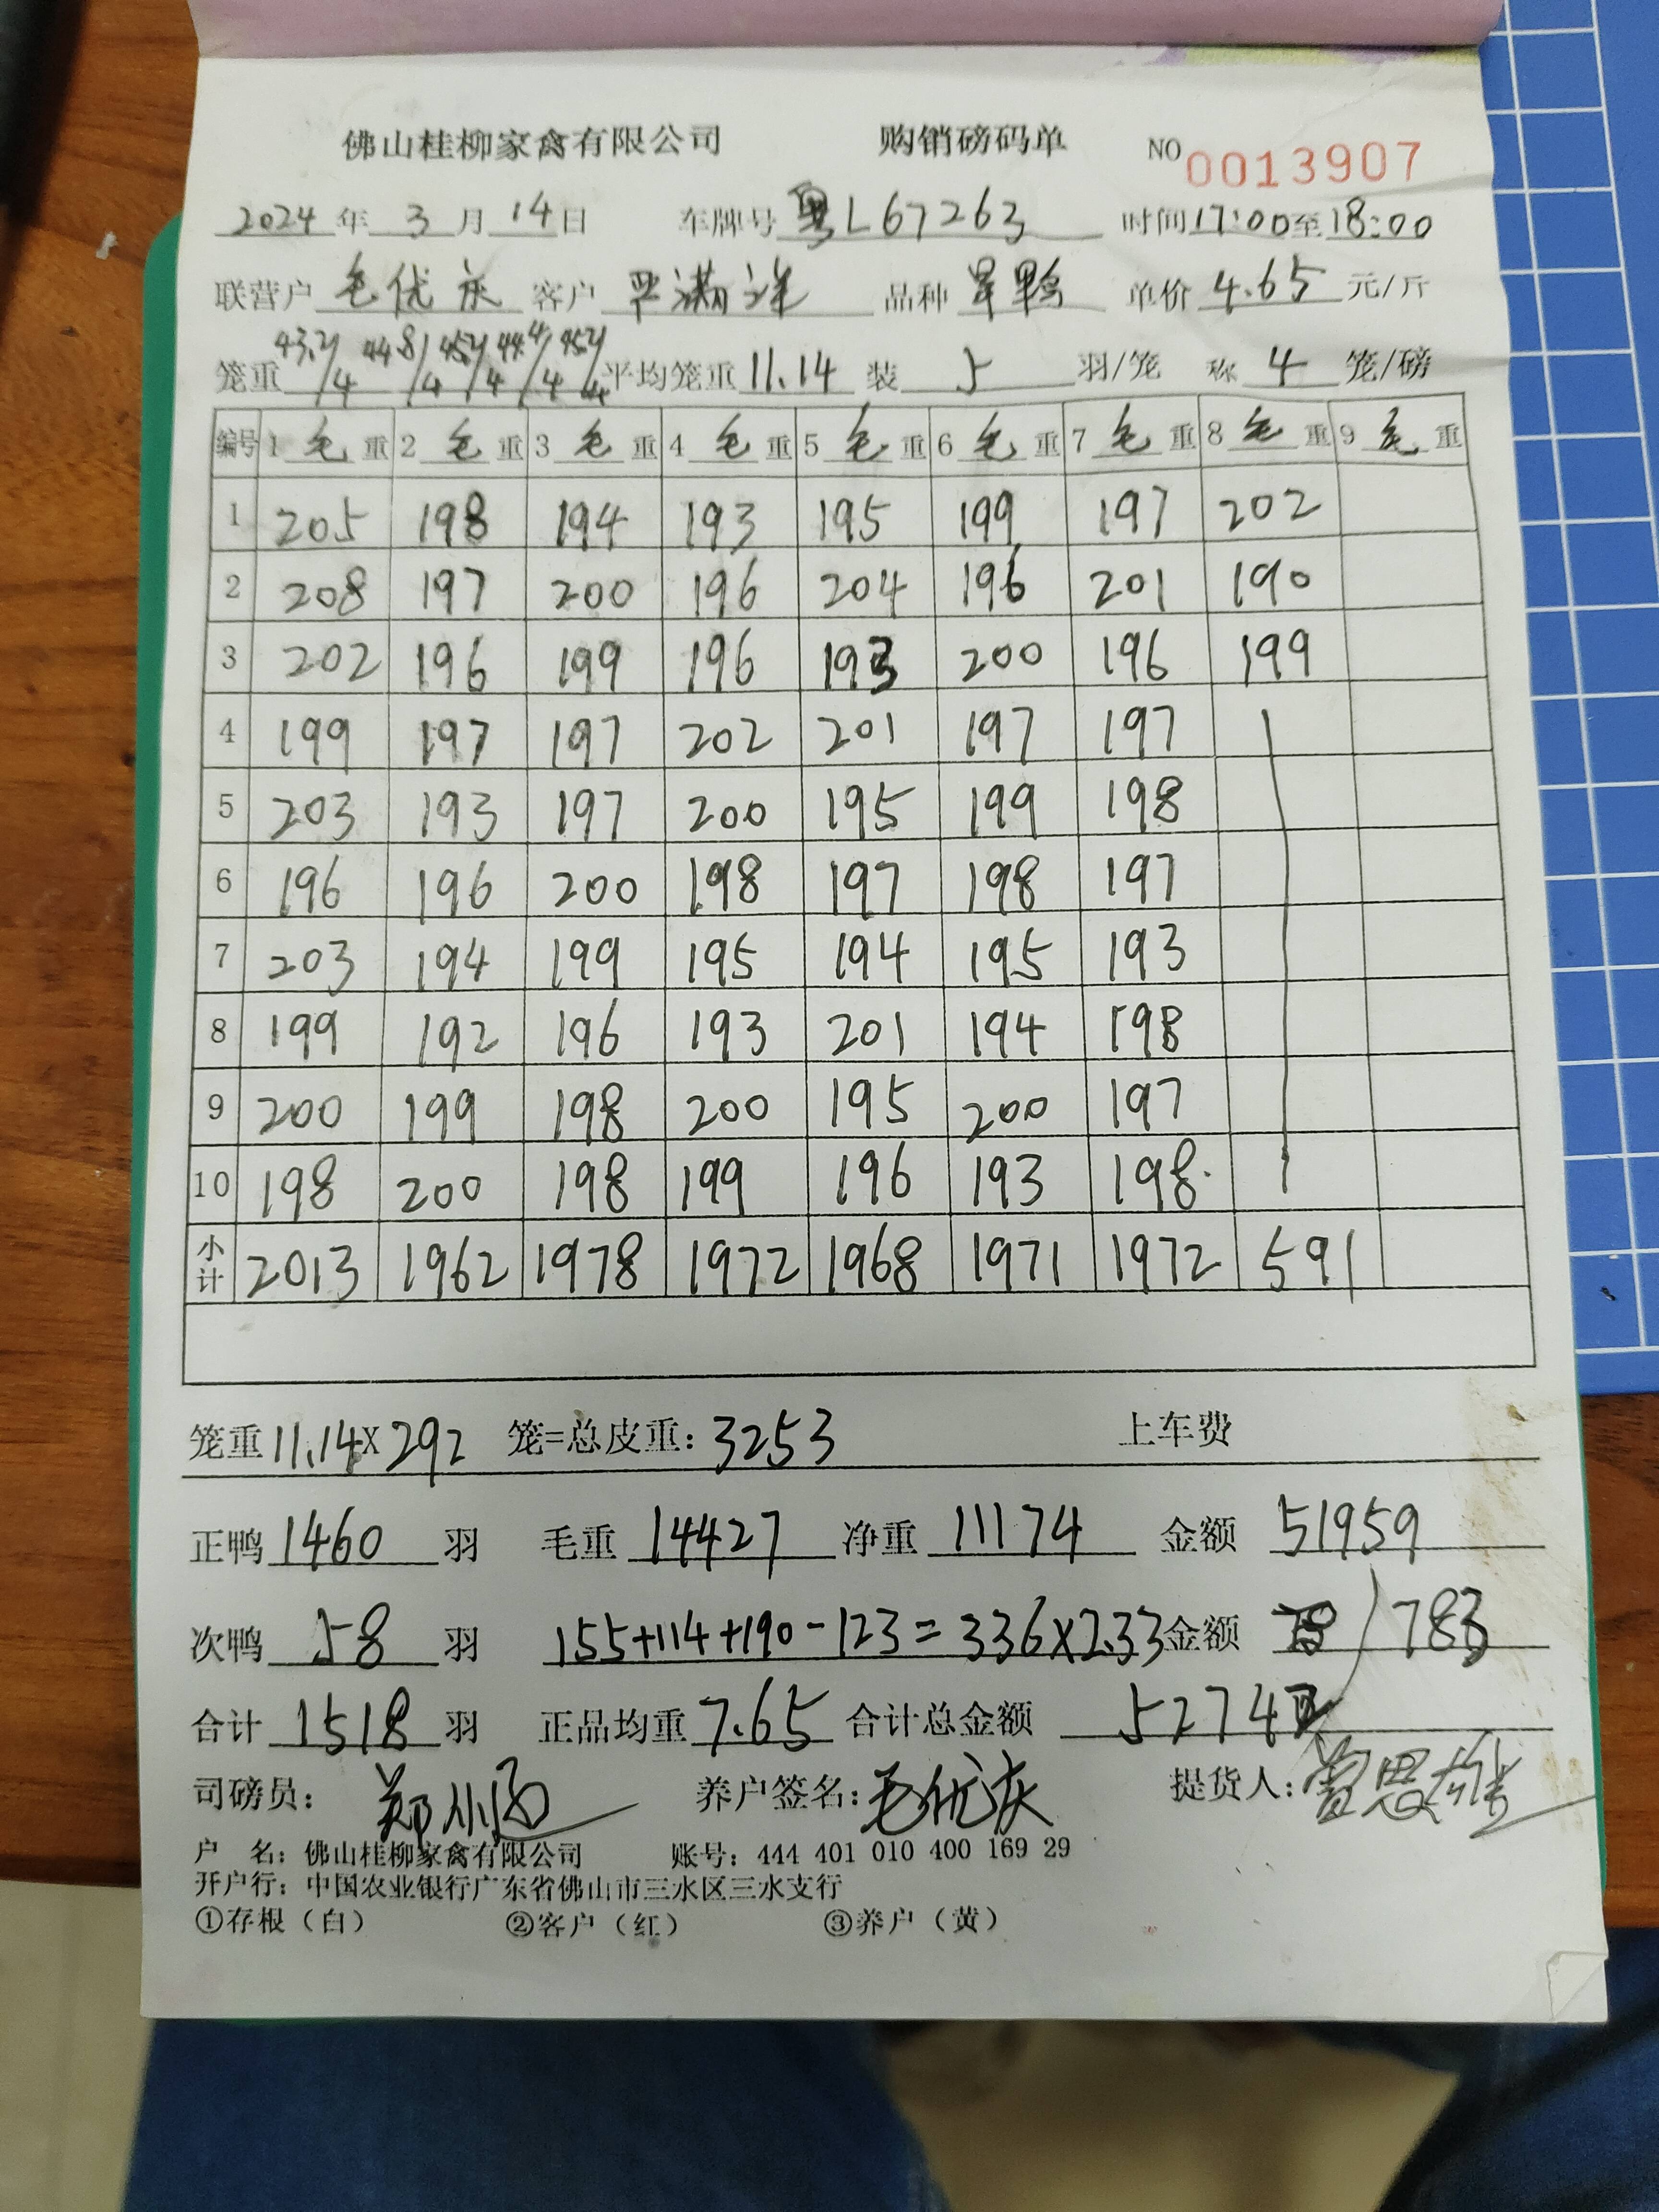 佛山桂柳家禽有限公司 购销磅码单 NO 0013907
2024年3月14日 车牌号 粤L67263 时间17:00至18:00
联营户 毛优庆 客户 严满 品种 旱鸭 单价 4.65 元/斤
笼重 43.2/4 44.8/4 45.2/4 44.4/4 45.2/4 平均笼重 11.14 装 5 羽/笼 称 4 笼/磅
编号 1 毛 重 2 毛 重 3 毛 重 4 毛 重 5 毛 重 6 毛 重 7 毛 重 8 毛 重 9 毛 重
1 205 198 194 193 195 199 197 202
2 208 197 200 196 204 196 201 190
3 202 196 199 196 193 200 196 199
4 199 197 197 202 201 197 197
5 203 193 197 200 195 199 198
6 196 196 200 198 197 198 197
7 203 194 199 195 194 195 193
8 199 192 196 193 201 194 198
9 200 199 198 200 195 200 197
10 198 200 198 199 196 193 198
小计 2013 1962 1978 1972 1968 1971 1972 591
笼重11.14X292 笼=总皮重: 3253 上车费
正鸭 1460 羽 毛重 14427 净重 11174 金额 51959
次鸭 58 羽 155+114+190-123=336×2.33 金额 783
合计 1518 羽 正品均重 7.65 合计总金额 52742
司磅员: 郑 养户签名: 毛优庆 提货人: 曾思雄
户 名: 佛山桂柳家禽有限公司 账号: 444 401 010 400 169 29
开户行: 中国农业银行广东省佛山市三水区三水支行
①存根（白） ②客户（红） ③养户（黄）